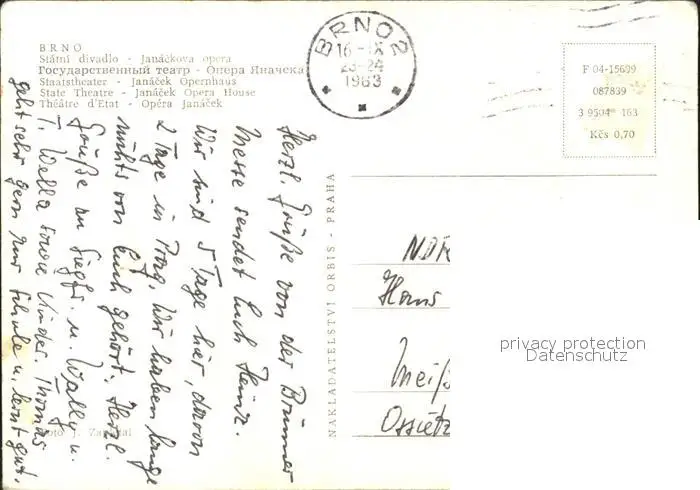 BRNO
Státní divadlo - Janáčkova opera
Государственный театр - Опера Яначека
Staatstheater - Janáček Opernhaus
State Theatre - Janáček Opera House
Théâtre d'Etat - Opéra Janáček
BRNO 2
16 - IX
23-24
1963
F 04-15699
087839
3 9504 163
Kčs 0,70
Herzl. Grüße von der Brünner
Messe sendet Euch Heinz.
Wir sind 5 Tage hier, davon
2 Tage in Prag. Wir haben lange
nichts von Euch gehört. Herzl.
Grüße an Siegfr. u. Wally u.
T. Wella sowie Kinder. Thomas
geht sehr gern zur Schule u. lernt gut.
NAKLADATELSTVÍ ORBIS - PRAHA
Foto J.
NDR
Hans
Meiß
Ossietz
privacy protection
Datenschutz